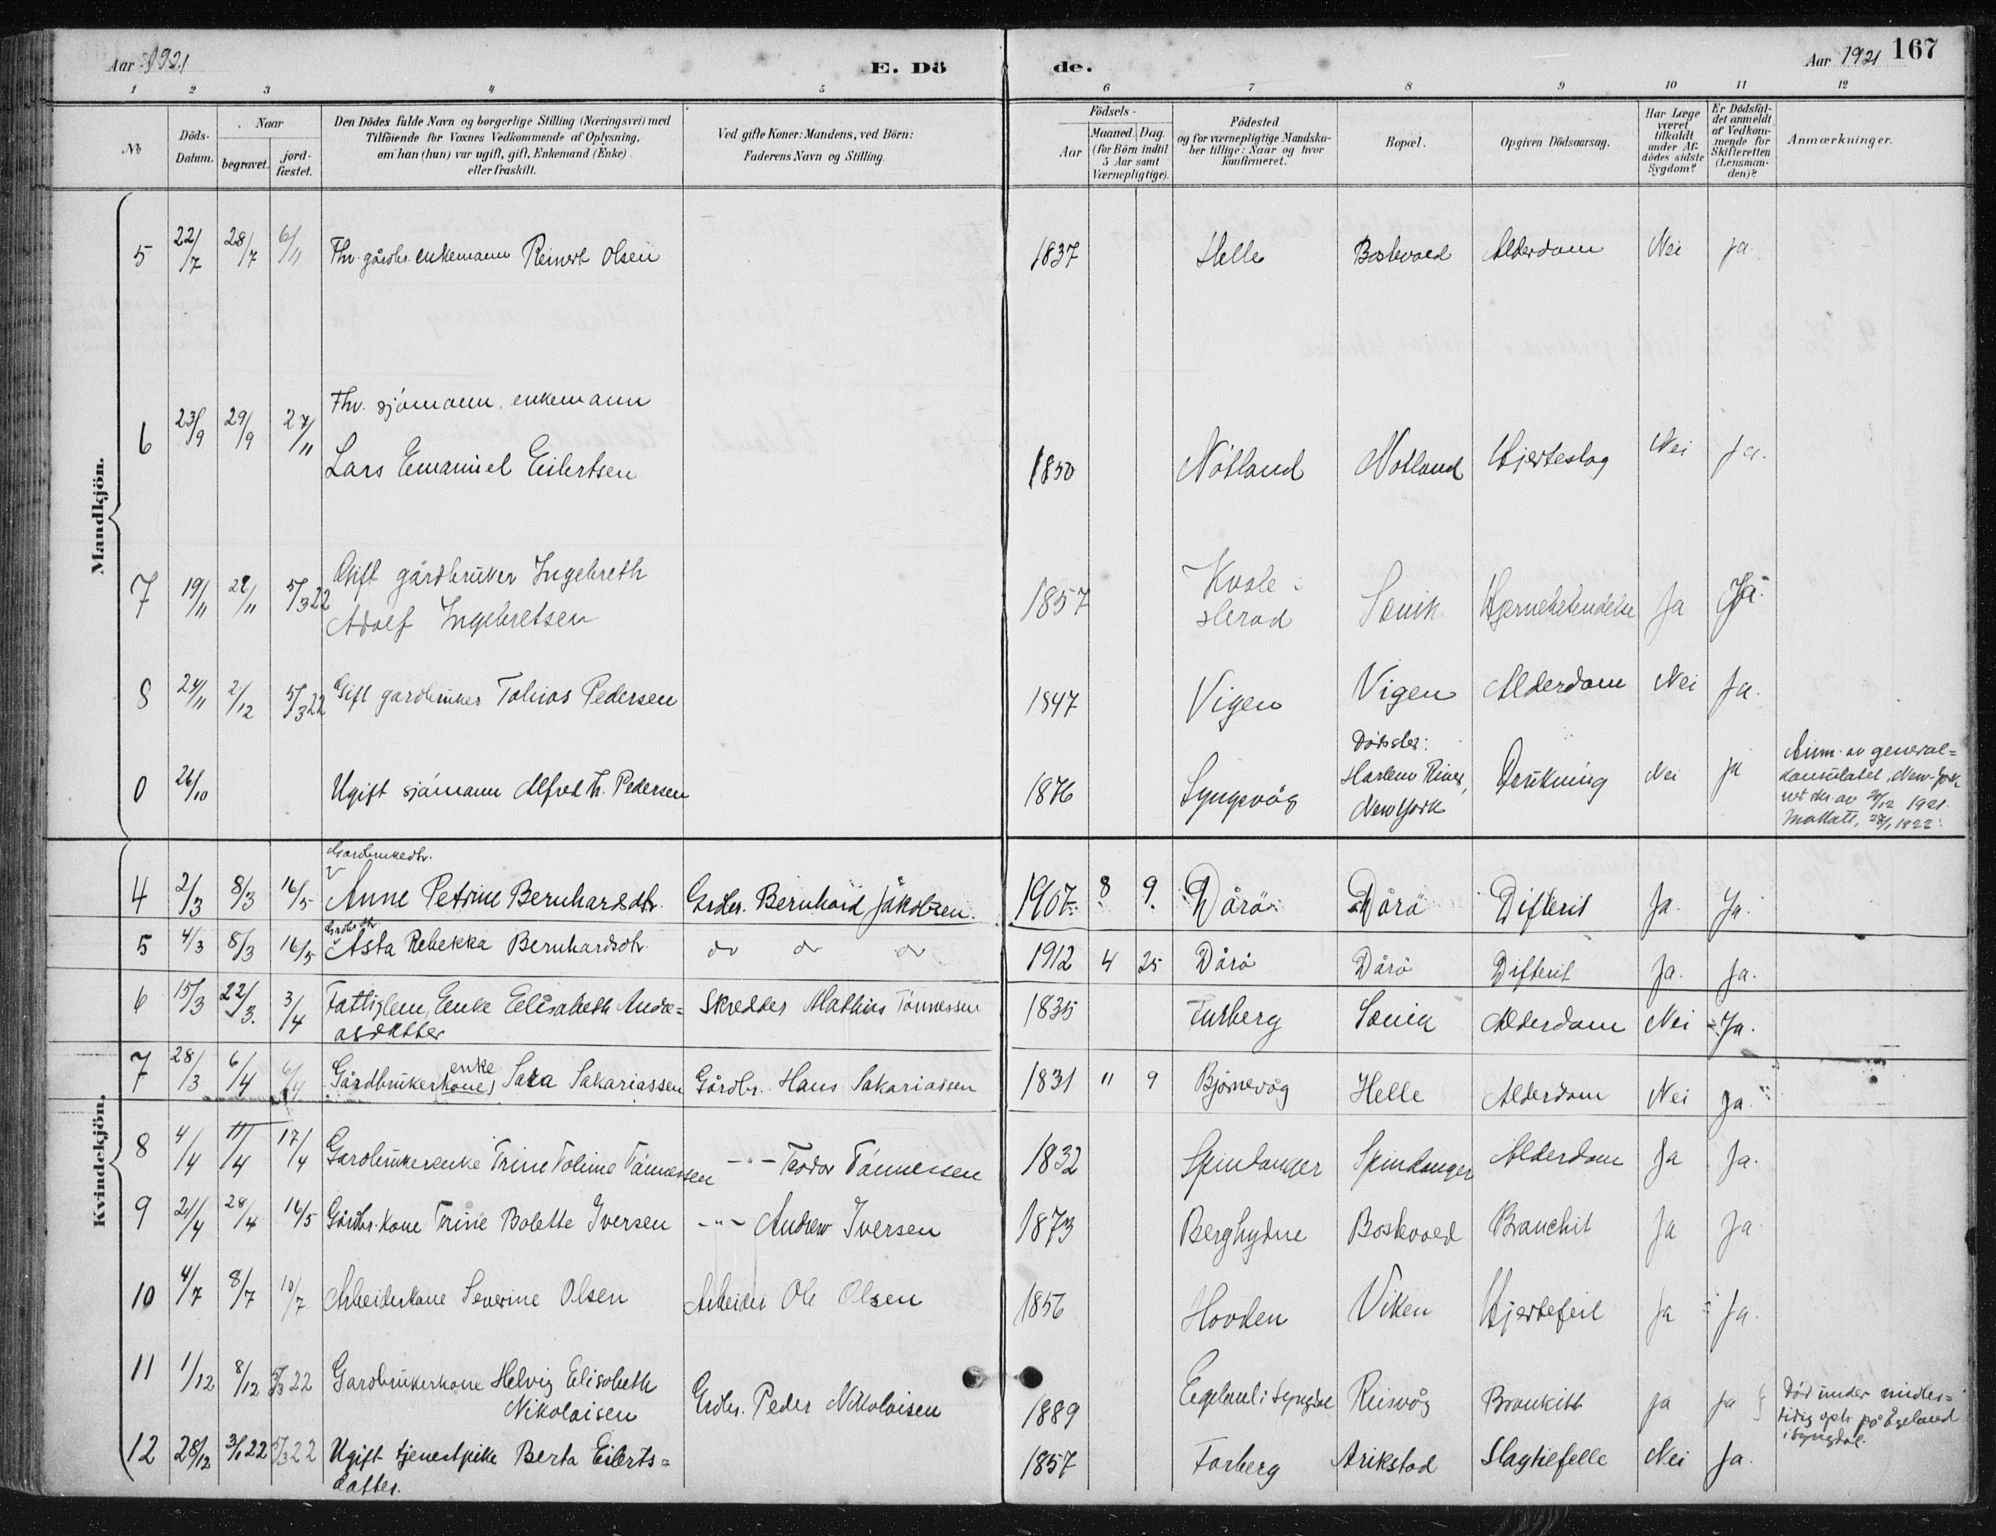 Aar 1921
E. Dö
de.
Aar 1921
167
1 2 3 4 5 6 7 8 9 10 11 12
№
Döds-
Datum.
Naar
begravet.
jord-
fæstet.
Den Dödes fulde Navn og borgerlige Stilling (Næringsvei) med
Tilföiende for Voxnes Vedkommende af Oplysning,
om han (hun) var ugift, gift, Enkemand (Enke)
eller fraskilt.
Ved gifte Koner: Mandens, ved Börn:
Faderens Navn og Stilling.
Födsels-
Aar
Maaned. Dag.
(for Börn indtil
5 Aar samt
Værnepligtige).
Födested
og for værnepligtige Mandska-
ber tillige: Naar og hvor
konfirmeret.
Bopæl.
Opgiven Dödsaarsag.
Har Læge
været
tilkaldt
under Af-
dödes sidste
Sygdom?
Er Dödsfal-
det anmeldt
af Vedkom-
mende for
Skifteretten
(Lensman-
den)?
Anmærkninger.
Mandkjön.
5 22/7 28/7 6/11 Fhv. gårdbr. enkemann Reinert Olsen 1837 Helle Boskvoed Alderdom Nei Ja
6 23/9 29/9 27/11 Fhv. sjømann, enkemann
Lars Emanuel Eilertsen 1850 Nøtland Nøtland Hjerteslag Nei Ja.
7 19/11 22/11 5/3 22 Gift gårdbruker Ingebreth
Adolf Ingebretsen 1857 Herad Ja Ja.
8 24/11 2/12 5/3 22 Gift gardbruker Tobias Pedersen 1847 Vigen Vigen Alderdom Nei Ja.
0 26/10 Ugift sjømann Alfred Th. Pedersen 1876 Syngevåg Dødssted:
Harlem River,
New York Drukning Nei Ja
Anm. av general-
konsulatet, New-York
20/12 1921.
Mottatt, 28/1 1922.
Kvindekjön.
Gardbrukerdtr.
4 2/3 8/3 16/5 Anne Petrine Bernhardsdtr. Grdbr. Bernhard Jakobsen. 1907. 8 9. Dårø Dårø Difterit Ja. Ja.
5 4/3 8/3 16/5 Asta Rebekka Bernhardsdtr. do do do 1912 4 25 Dårø Dårø Difterit Ja. Ja.
6 15/3 22/3. 3/4 Fattiglem, Enke Elisabeth Andre=
asdatter Skredder Mathias Tønnessen 1835 Furberg Alderdom Nei Ja.
7 28/3 6/4 6/4 Gårdbrukerkone, enke Sara Sakariassen Gårdbr. Hans Sakariassen 1831 " 9 Bjørnevåg Helle Alderdom Nei Ja
8 4/4 11/4 17/4 Gardbrukerenke Trine Toline Tønnessen - " - Teodor Tønnessen 1832 Spindanger Spindanger Alderdom Ja Ja.
9 21/4 28/4 16/5 Gårdbr. kone Trine Bolette Iversen - " - Andrew Iversen 1873 Berghydne Boskvoed Bronchit Ja Ja
10 4/7 8/7 10/7 Arbeiderkone Severine Olsen Arbeider Ole Olsen 1856 Hovden Viken Hjertefeil Ja Ja.
11 1/12 8/12 5/3 22 Gardbrukerkone Helvig Elisabeth
Nikolaisen Grdbr. Peder Nikolaisen 1889 Egeland i Lyngdal Risvåg Bronkitt Ja Ja
Død under midler-
tidig oph. på Egeland
i Lyngdal.
12 28/12 3/1 22 5/3 22 Ugift tjenestpike Berta Eilerts=
datter. 1857 Farberg Arikstad Slagtilfelle Nei Ja.